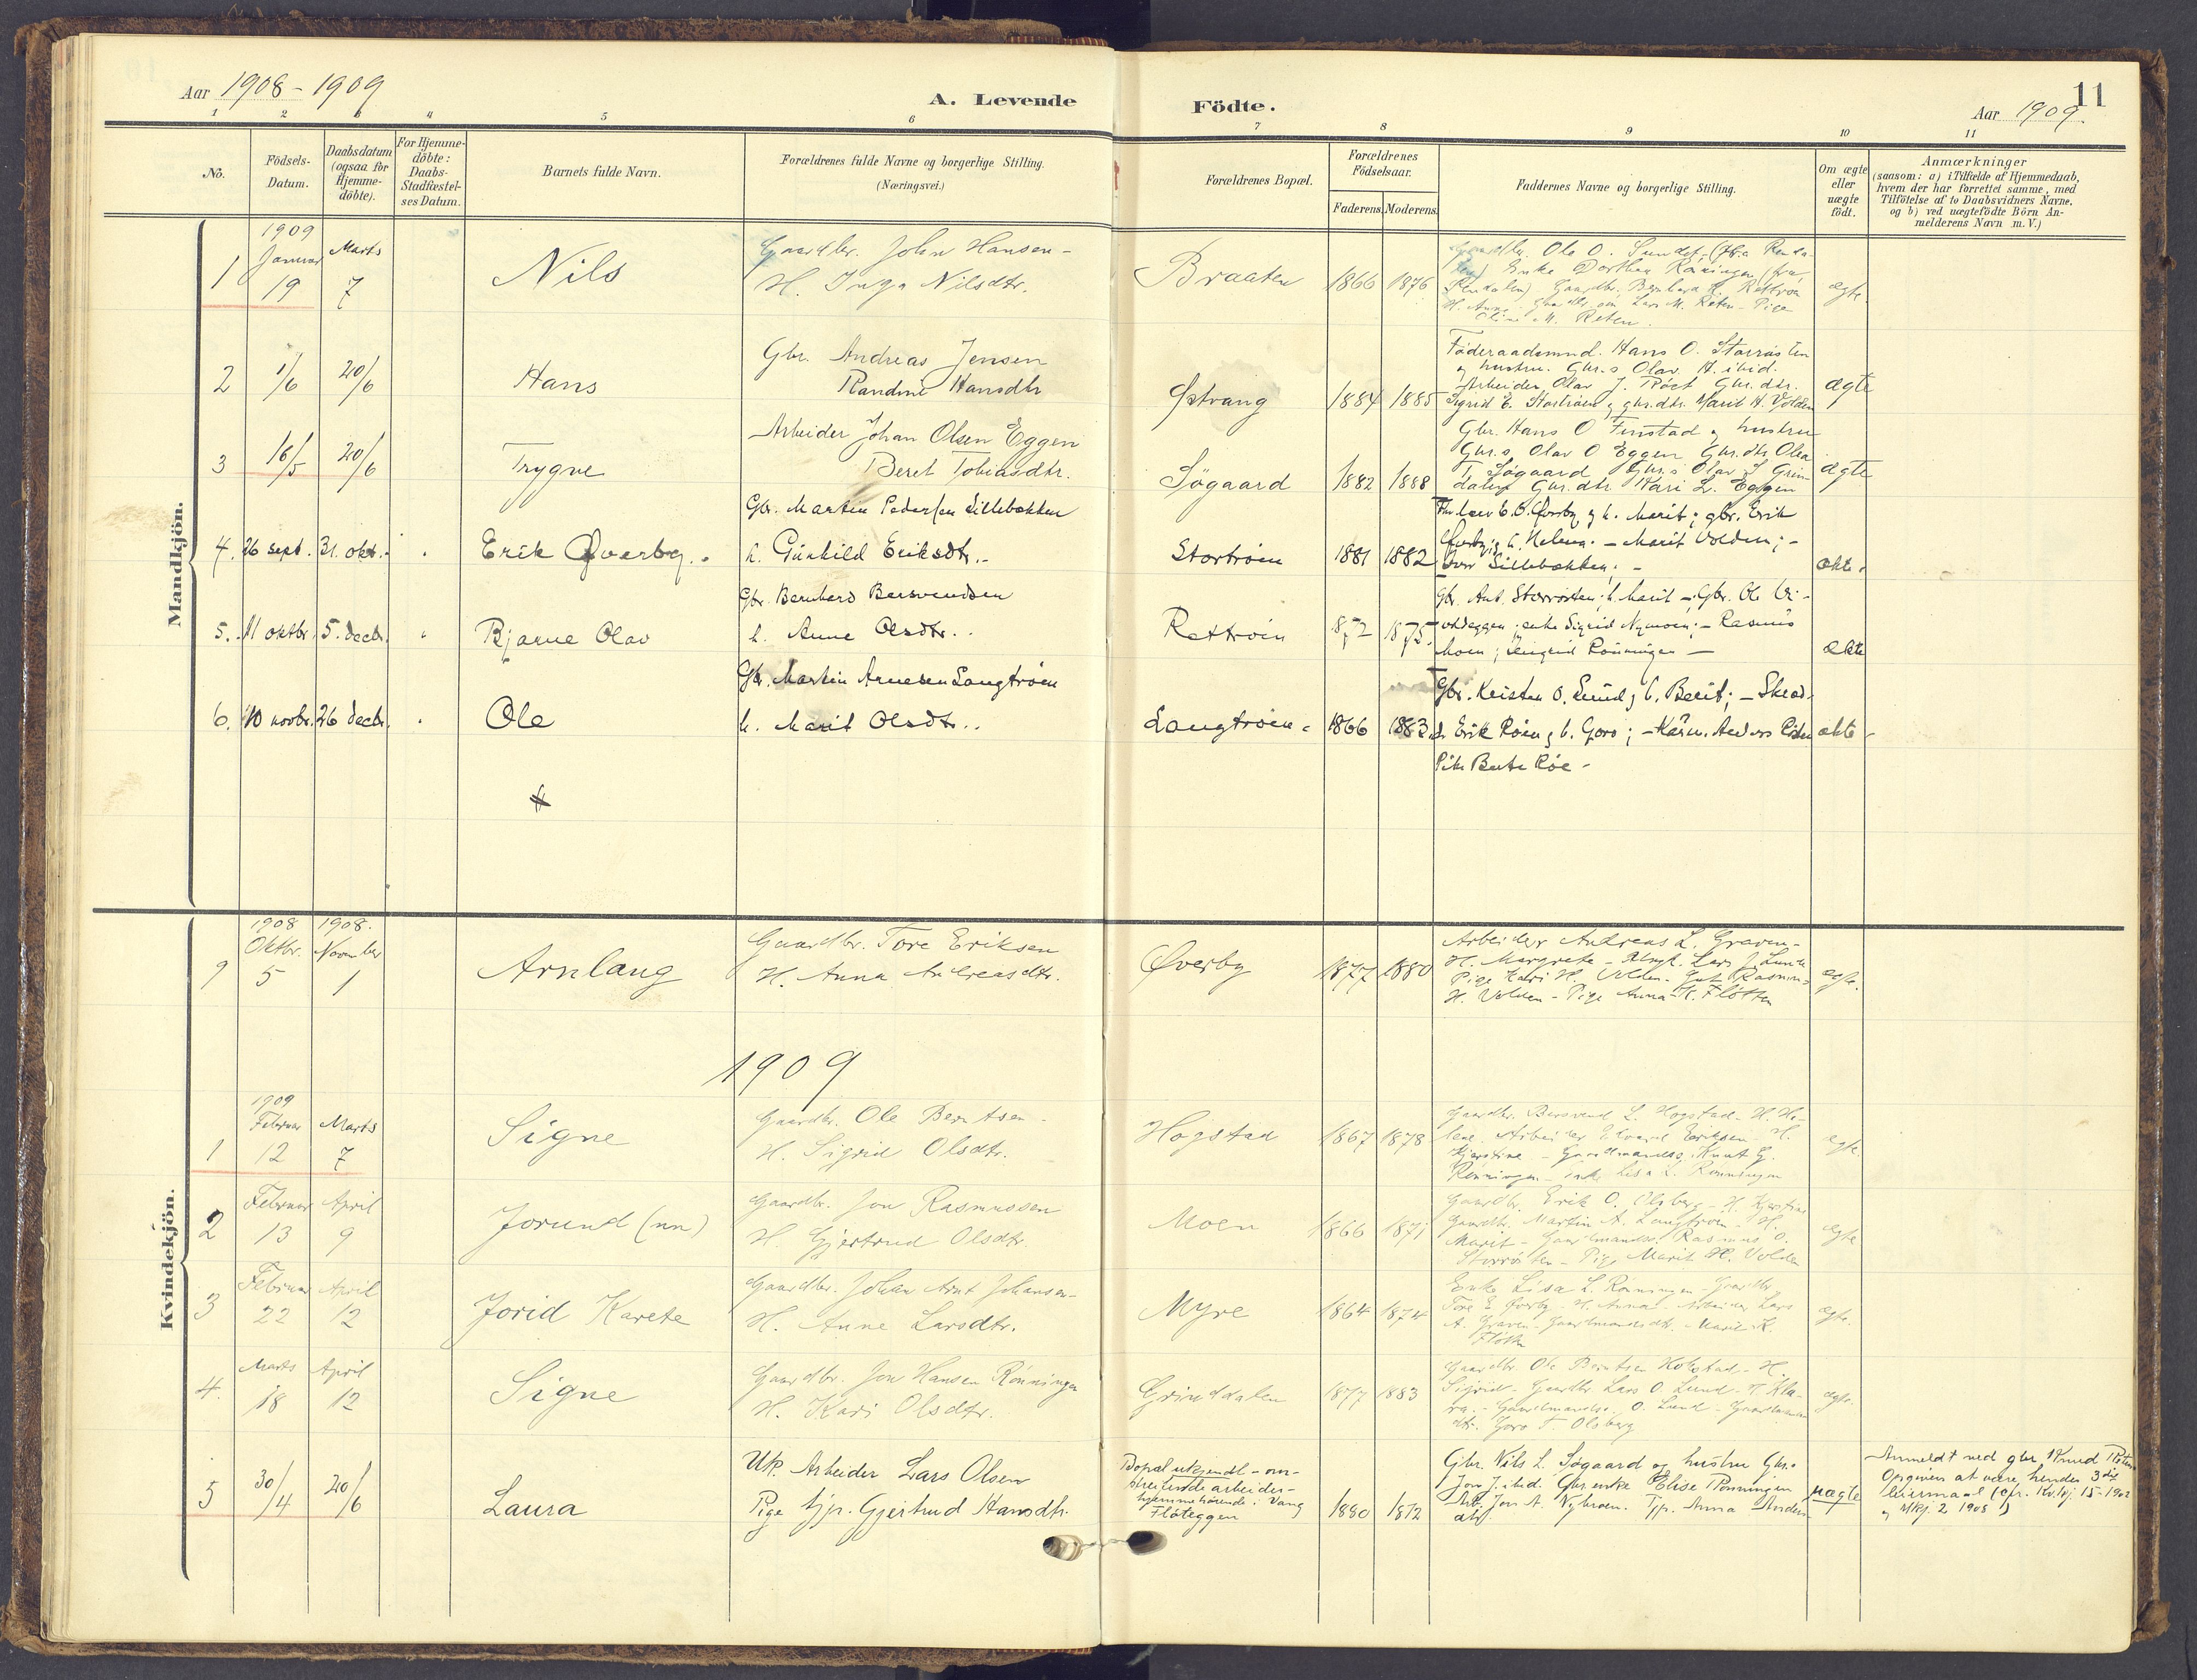 Aar 1908-1909
A. Levende
Födte.
Aar 1909.
11
1 2 3 4 5 6 7 8 9 10 11
No.
Födsels-
Datum.
Daabsdatum
(ogsaa for
Hjemme-
döbte).
For Hjemme-
döbte:
Daabs-
Stadfæstel-
ses Datum.
Barnets fulde Navn.
Forældrenes fulde Navne og borgerlige Stilling.
(Næringsvei.)
Forældrenes Bopæl.
Forældrenes
Födselsaar.
Faderens. Moderens.
Faddernes Navne og borgerlige Stilling.
Om ægte
eller
uægte
födt.
Anmærkninger
(saasom: a) i Tilfælde af Hjemmedaab,
hvem der har forrettet samme, med
Tilföielse af to Daabsvidners Navne.
og b) ved uægtefödte Börn An-
melderens Navn m. V.)
Mandkjön.
1
1909
Januar
19
Marts
7
Nils
Gaardbr. John Hansen-
H. Inga Nilsdtr.
Braaten
1866 1876
Gaardbr. Ole O.
Enke Dorthea Rønningen (fra
Rendalen) Gaardbr. Bernhard Rettroen
H. Anne Lars M. Røten - Pige
M. Røten.
ægte.
2
1/6
20/6
Hans
Gbr. Andreas Jensen
Randine Hansdtr
Østvang
1884 1885
Føderaadsmnd. Hans O. Storrøsten
og hustru. Gbr.s Olav H. ibid.
Arbeider Olav J. Gbr. dtr.
Sigrid E. Storrøen, gbr.dtr. Marit H. Volden
ægte
3
16/5
20/6
Trygve
Arbeider Johan Olsen Eggen
Beret Tobiasdtr.
Søgaard
1882 1888
Gbr. Hans O Finstad og hustru
Gbr.s. Olav O Eggen Gbr. dtr Olea
T. Søgaard Gbr.s Olav Grin-
dalen Gbr. dtr. Kari L. Eggen
ægte
4.
26 sept.
31. okt.
Erik Øverby.
Gbr. Martin Pedersen Lillebakken
h. Gunhild Eriksdtr.
Stortrøen
1881 1882
Øverby og h. Marit; gbr. Erik
Øverby; h. Helena. - Marit Volden; -
Lillebakken. -
ekte.
5.
11 oktbr.
5. decb.
Bjarne Olav
Gbr. Bernhard Bersvendsen
h. Anne Olsdtr.
Rettroen
1872 1875.
Gbr. Ant. Storrøsten; h. Marit - Gbr. Ole
enke Sigrid Nymoen; - Rasmus
Moen; Rönningen -
ekte
6.
10 novbr.
26 decb.
Ole
Gbr. Martin Arnesen Langtrøen
h. Marit Olsdtr.
Langtrøen
1866 1883
Gbr. Kristen O. Lund og h. Berit; - Skred-
d. Erik Röen og h. Goro; - Anders
Pike Berte Röe -
ekte
Kvindekjön.
9
1908
Oktbr.
5
1908.
November
1
Arnlaug
Gaardbr. Tore Eriksen
H. Anna Andreasdtr.
Øverby
1877 1880
Arbeider Andreas L. Graven-
H. Margrete - Lars J. Lunde
Pige Kari H. Volden - Gut Rasmus
H. Volden - Pige Anna K. Fløtten
ægte.
1909
1
1909
Februar
12
Marts
7
Signe
Gaardbr. Ole Berntsen -
H. Sigrid Olsdtr.
Hogstad
1867 1878
Gaardbr. Bersvend L. Hogstad - H. He-
lene. Arbeider Edvard Eriksen. H.
Kjerstine - Gaardmandss. Knut G.
Rønningen - enke Lisa L. Rønningen
ægte.
2
Februar
13
April
9
Jorund (un)
Gaardbr. Jon Rasmussen
H Gjertrud Olsdtr.
Moen
1866 1871
Gaardbr. Erik O. Olsberg - H. Kjerstine
Gaardbr. Martin A. Langtroen - H.
Marit - Gaardmandss. Rasmus O.
Storrøsten - Pige Marit H. Volden
ægte
3
Februar
22
April
12
Jorid Karete
Gaardbr. Johan Arnt Johansen-
H. Anne Larsdtr.
Myre
1864 1874
Enke Lisa L. Rønningen - Gaardbr.
Tore E Øverby - H. Anna - Arbeider Lars
A. Graven - Gaardmandsdtr. Marie K.
Fløtten
ægte.
4.
Marts
18
April
12
Signe
Gaardbr. Jon Hansen Rønningen
H. Kari Olsdtr.
Grinddalen
1877 1883
Gaardbr. Ole Berntsen Hokstad - H.
Sigrid - Gaardbr. Lars O. Lund - H. Kla-
ra. - Gaardmandss. O. Lund - Gaardman
dtr. Goro T. Olsberg
ægte.
5
30/4
20/6
Laura
Uk. Arbeider Lars Olsen
Pige tjp. Gjertrud Hansdtr.
Bopæl ukjendt - om-
streifende arbeider -
hjemmehørende i Vang
Fløteggen
1880 1872
Gbr. Nils L. Søgaard og hustru Gbr.
Jon J. ibid. Gbr enke Elise Rønningen
Arb. Jon A. Nybroen. Tjp. Anna Anders-
dtr.
uægte
Anmeldt ved gbr. Knud Røten
Opgiven at være hendes 3die
leiermaal (cfr. Kv.kj. 15-1902
og Mkj. 2 1908)